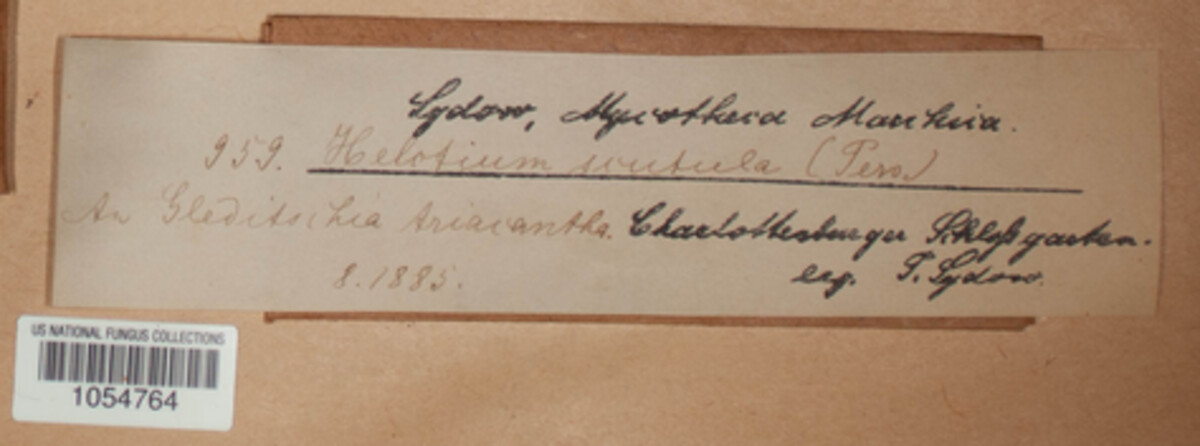 Sydow, Mycotheca Marchica.
959. Helotium scutula (Pers.)
An Gleditschia triacantha. Charlottenburger Schloßgarten.
8. 1885. leg. P. Sydow.
US NATIONAL FUNGUS COLLECTIONS
1054764